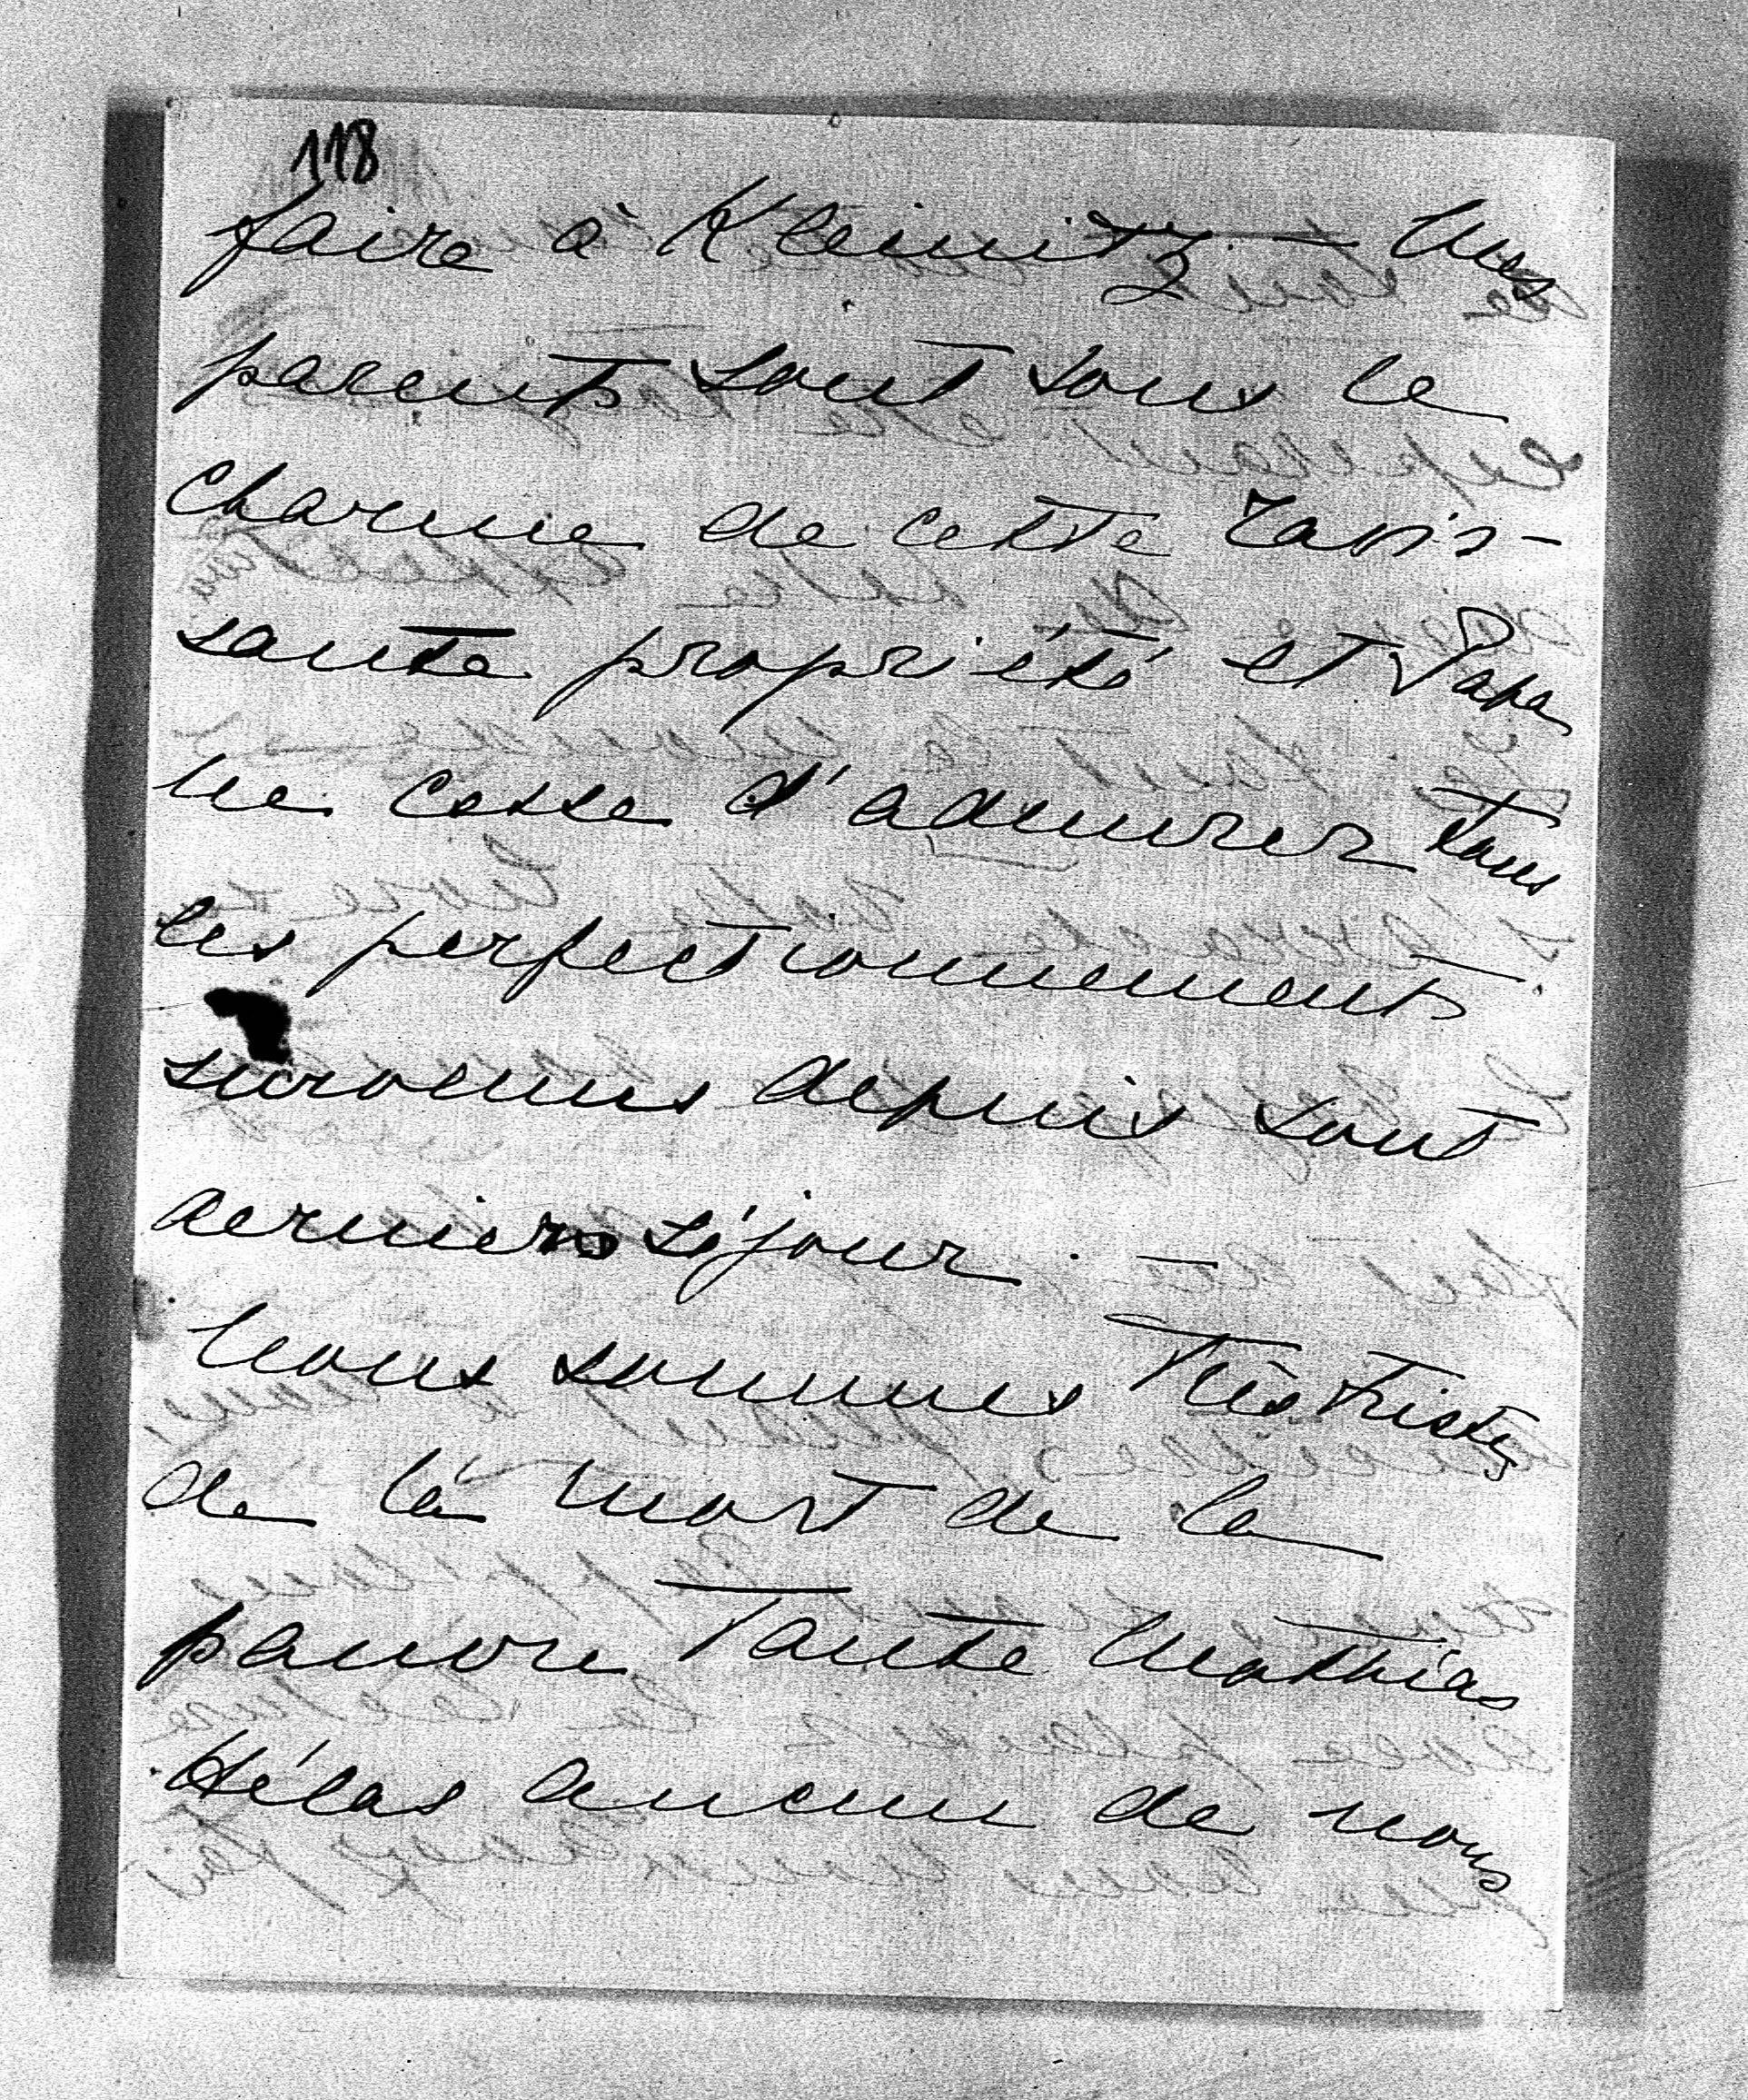 118
faire à Kleinitz. — Mes
parents sont sous le
charme de cette ravis-
sante propriété et Papa
ne cesse d'admirer tous
les perfectionnements
survenus depuis sont
derniers séjour. —
Nous sommes très tristes
de la mort de la
pauvre Tante Mathias
Hélas aucun de nous